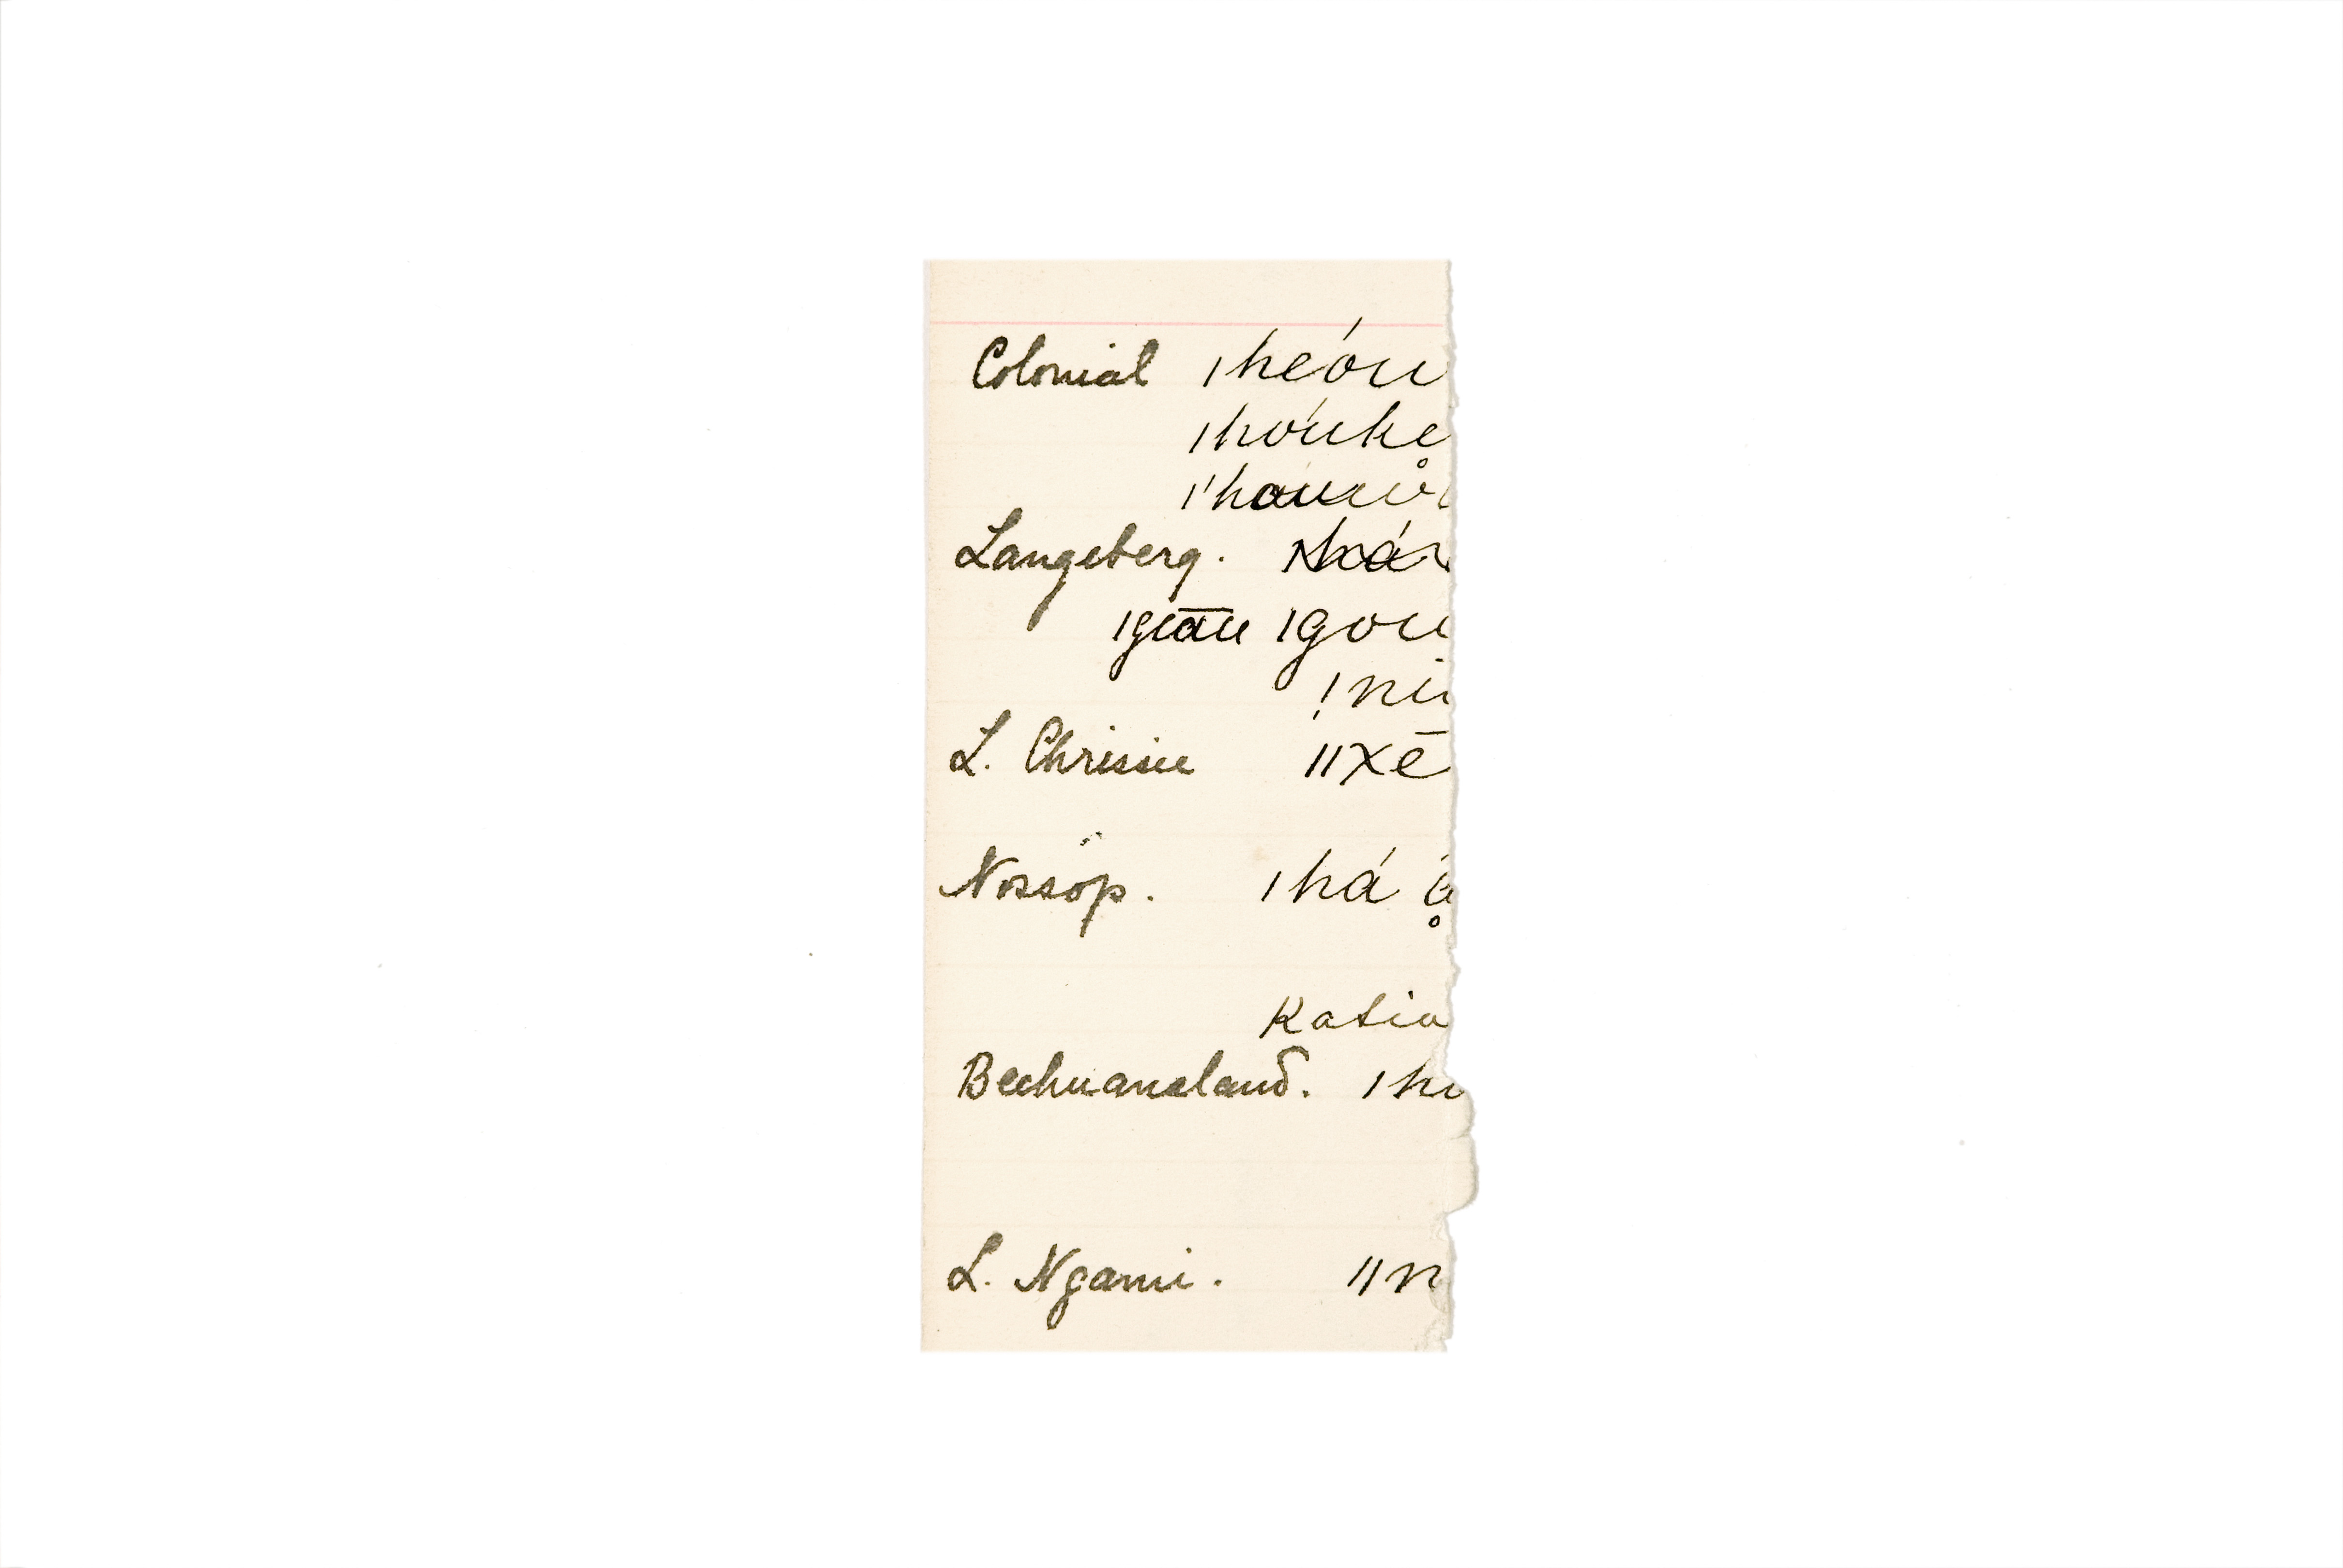 Colonial ǀhéou
ǀhóuke
Langeberg.
ǀgou
!nu
L. Chrissie ǁxē
Nossop. ǀhá
Katia
Bechuanaland. ǀhu
L. Ngami. ǁn